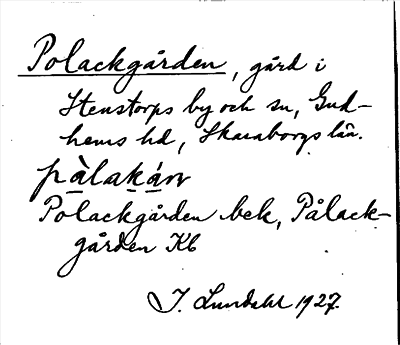 Polackgården, gård i
Stenstorps by och sn, Gud-
hems hd, Skaraborgs län.
pàlakárn
Polackgården bek, Pålack-
gården Kb
J. Lundahl 1927.